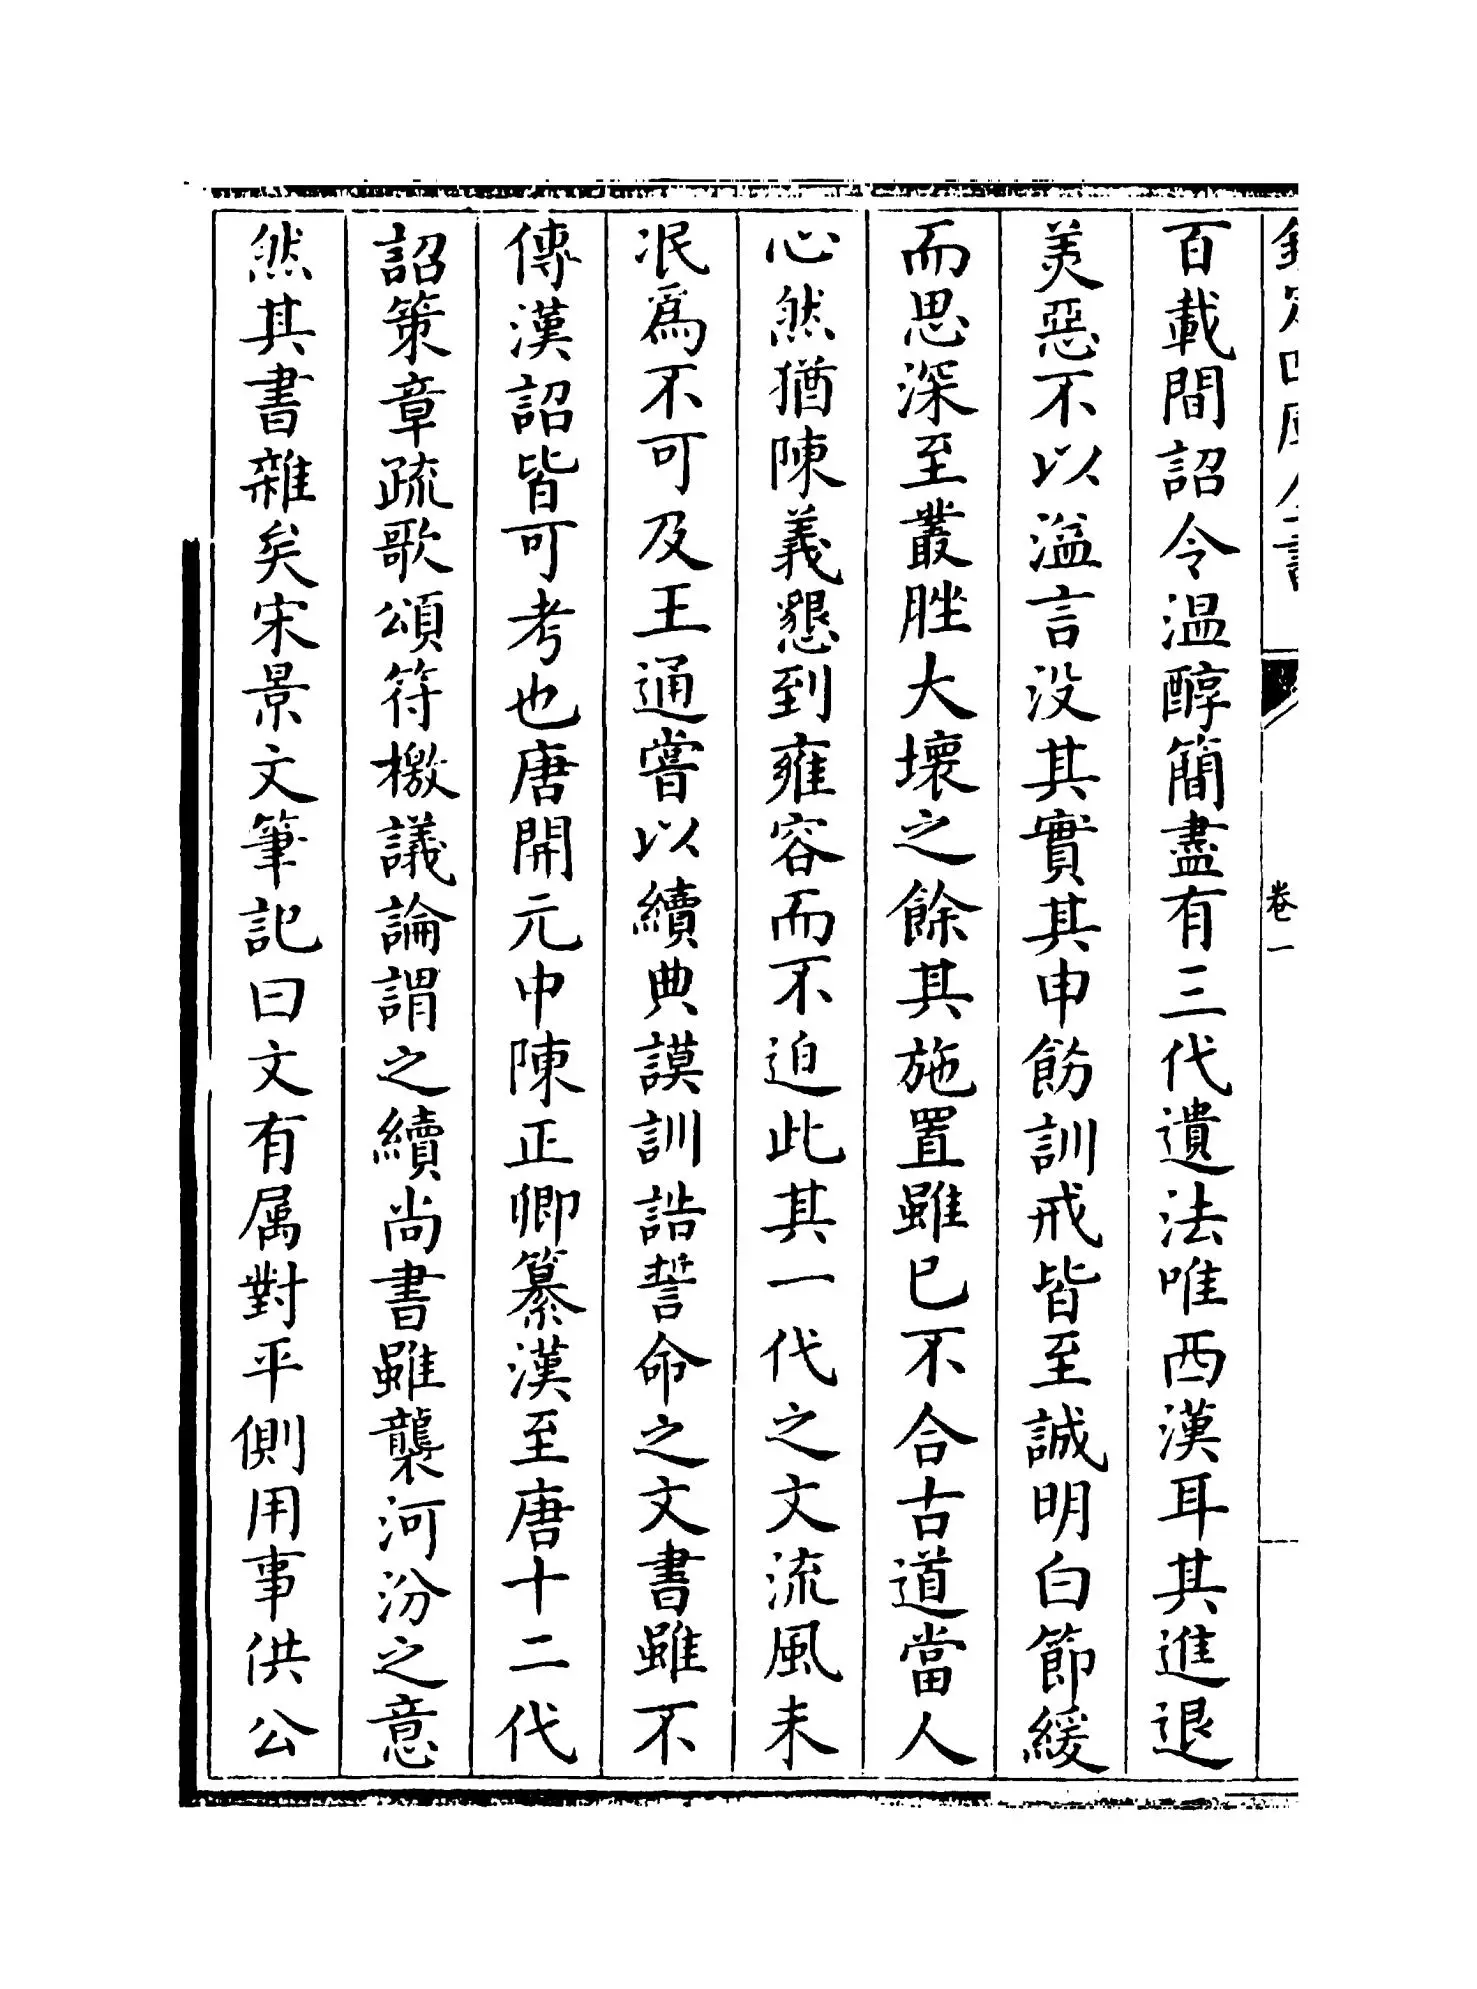 百載間詔令温醇簡盡有三代遺法唯西漢耳其進退
美惡不以溢言没其實其申飭訓戒皆至誠明白節緩
而思深至叢脞大壞之餘其施置雖已不合古道當人
心然猶陳義懇到雍容而不迫此其一代之文流風未
泯為不可及王通嘗以續典謨訓誥誓命之文書雖不
傳漢詔皆可考也唐開元中陳正卿纂漢至唐十二代
詔策章疏歌頌符檄議論謂之續尚書雖襲河汾之意
然其書雜矣宋景文筆記曰文有属對平側用事供公
卷一